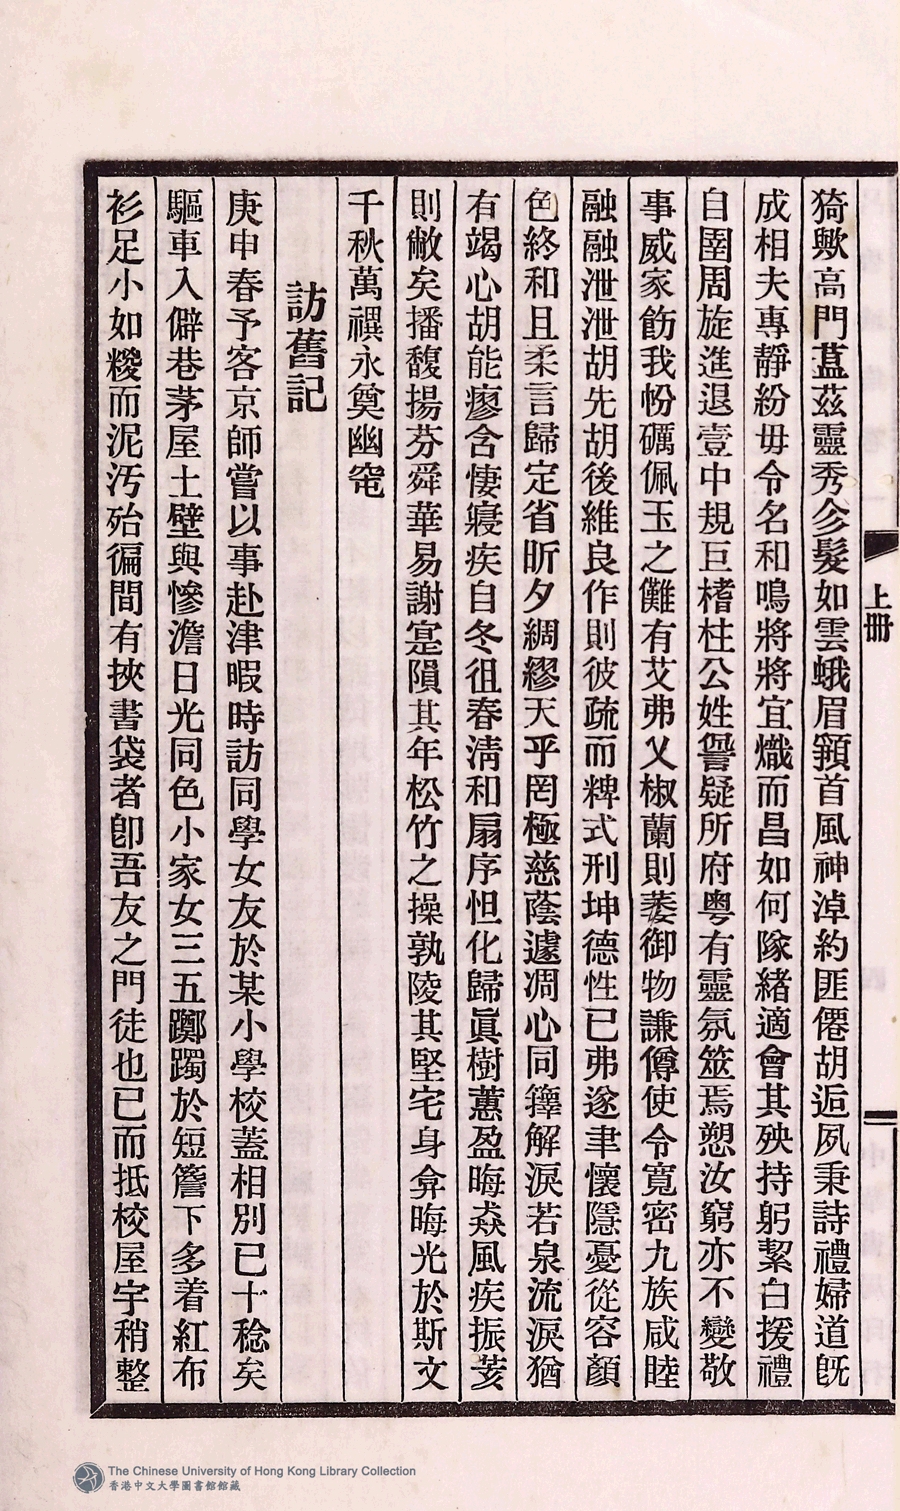 猗歟高門葢茲靈秀㐱髮如雲蛾眉顙首風神淖約匪僊胡逅夙秉詩禮婦道旣
成相夫專靜紛毋令名和鳴將將宜熾而昌如何隊緖適會其殃持躬絜白援禮
自圉周旋進退壹中規巨榰柱公姓誾疑所府粤有靈氛筮焉愬汝窮亦不變敬
事威家飭我帉礪佩玉之儺有艾弗乂椒蘭則萎御物謙僔使令寬密九族咸睦
融融泄泄胡先胡後維良作則彼疏而粺式刑坤德性已弗遂聿懷隱憂從容顏
色終和且柔言歸定省昕夕綢繆天乎罔極慈蔭遽凋心同籜解淚若泉流淚猶
有竭心胡能瘳含悽寢疾自冬徂春淸和扇序怛化歸眞樹蕙盈晦猋風疾振茇
則敝矣播馥揚芬舜華易謝寔隕其年松竹之操孰陵其堅宅身弇晦光於斯文
千秋萬禩永奠幽窀
訪舊記
庚申春予客京師嘗以事赴津暇時訪同學女友於某小學校蓋相別已十稔矣
驅車入僻巷茅屋土壁與慘澹日光同色小家女三五躑躅於短簷下多着紅布
衫足小如糉而泥汚殆徧間有挾書袋者卽吾友之門徒也已而抵校屋宇稍整
上冊
The Chinese University of Hong Kong Library Collection
香港中文大學圖書館館藏